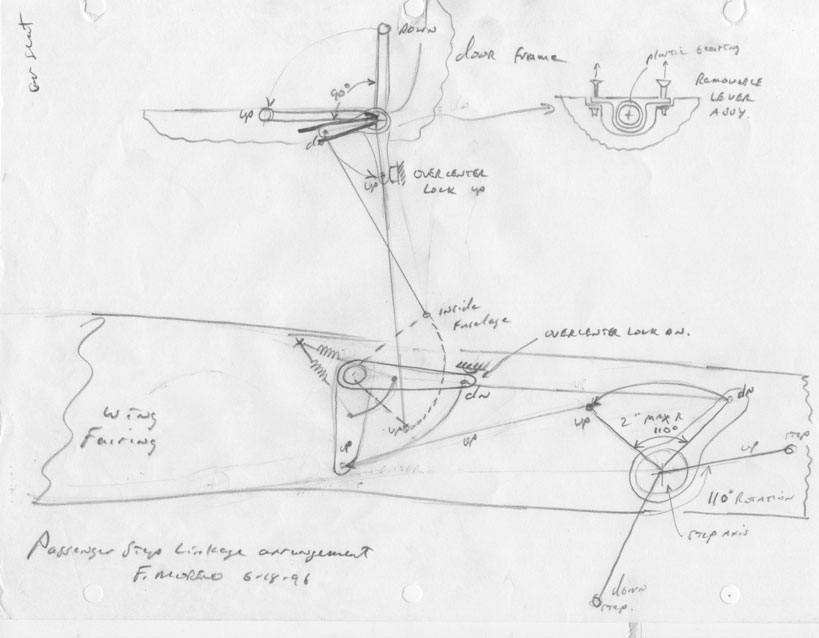 DOWN
door frame
plastic bearing
REMOVABLE
LEVER
ASSY.
90°
up
dn
up
OVERCENTER
LOCK up
inside
fuselage
OVERCENTER LOCK DN.
dN
wing
Fairing
up
up
up
up
dN
2" MAX R
110°
up
STEP
110° ROTATION
STEP AXIS
down
step.
Passenger Step Linkage arrangement
F. MORENO 6-18-96